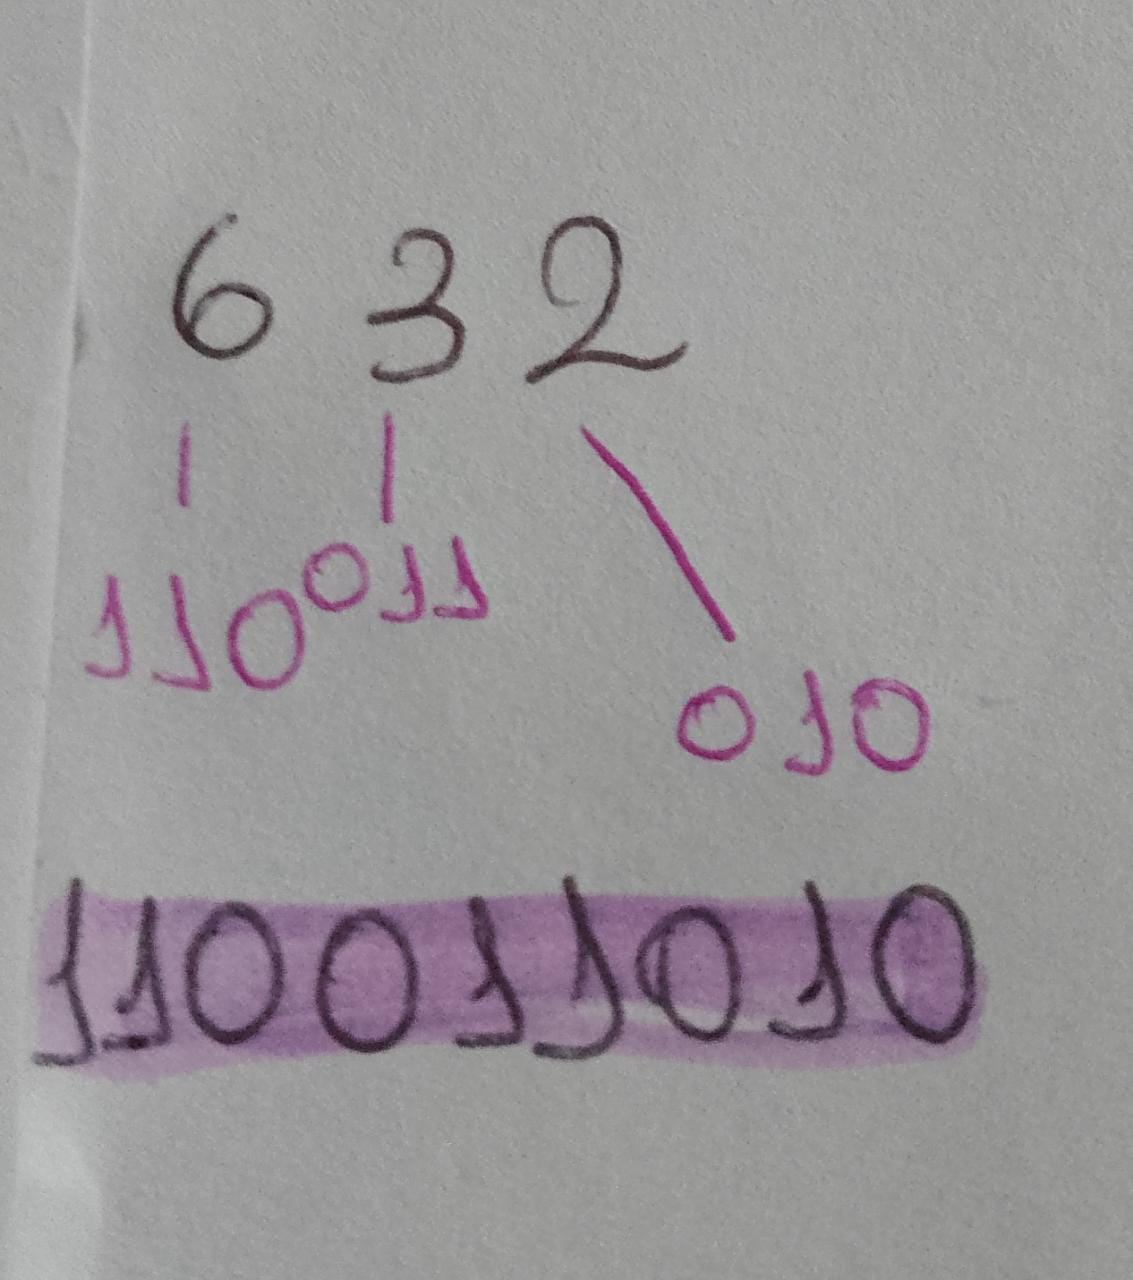 6 3 2
110 011
010
110011010